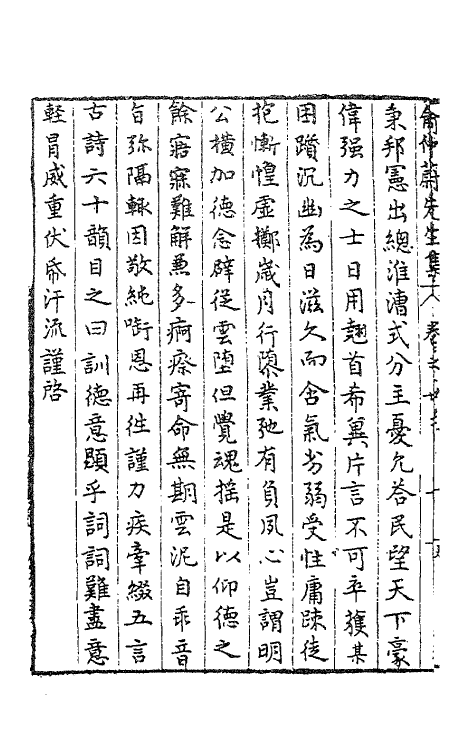 俞仲蔚先生集 卷之
秉邦憲出總淮漕式分主憂允答民望天下豪
偉强力之士日用翹首希冀片言不可卒獲某
困躓沉幽為日滋久而含氣劣弱受性庸踈徒
抱慚惶虛擲歲月行隳業弛有負夙心豈謂明
公橫加德念辟從雲墮但覺魂揺是以仰德之
餘寤寐難解兼多痾瘵寄命無期雲泥自乖音
旨弥隔輙因敬純啣恩再徃謹力疾牽綴五言
古詩六十韻目之曰訓德意顯乎詞詞難盡意
輕冒威重伏帋汗流謹啓